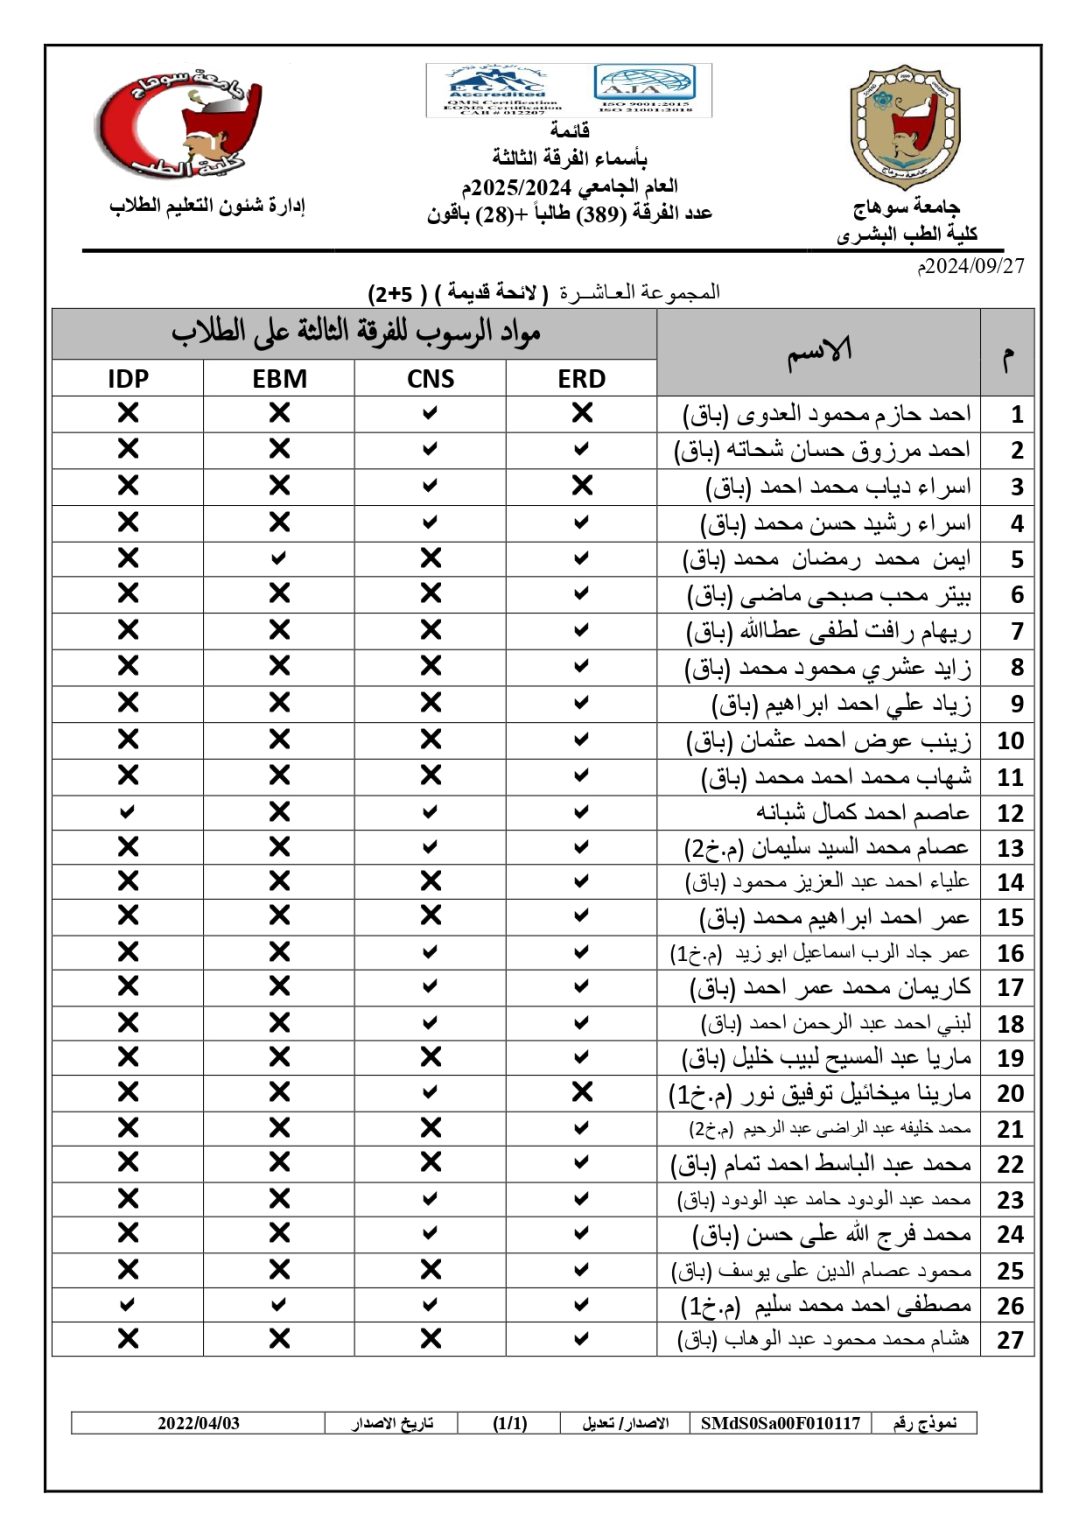 جامعة سوهاج
كلية الطب
EGAC
Accredited
QMS Certification
EOMS Certification
CAB # 012207
AJA
ISO 9001:2015
ISO 21001:2018
قائمة
بأسماء الفرقة الثالثة
العام الجامعي 2025/2024م
عدد الفرقة (389) طالباً +(28) باقون
جامعة سوهاج
كلية الطب البشرى
إدارة شئون التعليم الطلاب
2024/09/27م
المجموعة العاشرة ( لائحة قديمة ) ( 5+2)
م الاسم مواد الرسوب للفرقة الثالثة على الطلاب
ERD CNS EBM IDP
1 احمد حازم محمود العدوى (باق) ✖ ✔ ✖ ✖
2 احمد مرزوق حسان شحاته (باق) ✔ ✔ ✖ ✖
3 اسراء دياب محمد احمد (باق) ✖ ✔ ✖ ✖
4 اسراء رشيد حسن محمد (باق) ✔ ✔ ✖ ✖
5 ايمن محمد رمضان محمد (باق) ✔ ✖ ✔ ✖
6 بيتر محب صبحى ماضى (باق) ✔ ✖ ✖ ✖
7 ريهام رافت لطفى عطاالله (باق) ✔ ✖ ✖ ✖
8 زايد عشري محمود محمد (باق) ✔ ✖ ✖ ✖
9 زياد علي احمد ابراهيم (باق) ✔ ✖ ✖ ✖
10 زينب عوض احمد عثمان (باق) ✔ ✖ ✖ ✖
11 شهاب محمد احمد محمد (باق) ✔ ✖ ✖ ✖
12 عاصم احمد كمال شبانه ✔ ✔ ✖ ✔
13 عصام محمد السيد سليمان (م.خ2) ✔ ✔ ✖ ✖
14 علياء احمد عبد العزيز محمود (باق) ✔ ✖ ✖ ✖
15 عمر احمد ابراهيم محمد (باق) ✔ ✖ ✖ ✖
16 عمر جاد الرب اسماعيل ابو زيد (م.خ1) ✔ ✔ ✖ ✖
17 كاريمان محمد عمر احمد (باق) ✔ ✔ ✖ ✖
18 لبني احمد عبد الرحمن احمد (باق) ✔ ✔ ✖ ✖
19 ماريا عبد المسيح لبيب خليل (باق) ✔ ✖ ✖ ✖
20 مارينا ميخائيل توفيق نور (م.خ1) ✖ ✔ ✖ ✖
21 محمد خليفه عبد الراضى عبد الرحيم (م.خ2) ✔ ✖ ✖ ✖
22 محمد عبد الباسط احمد تمام (باق) ✔ ✖ ✖ ✖
23 محمد عبد الودود حامد عبد الودود (باق) ✔ ✔ ✖ ✖
24 محمد فرج الله على حسن (باق) ✔ ✔ ✖ ✖
25 محمود عصام الدين على يوسف (باق) ✔ ✖ ✖ ✖
26 مصطفى احمد محمد سليم (م.خ1) ✔ ✔ ✔ ✔
27 هشام محمد محمود عبد الوهاب (باق) ✔ ✖ ✖ ✖
نموذج رقم SMdS0Sa00F010117 الاصدار/ تعديل (1/1) تاريخ الاصدار 2022/04/03